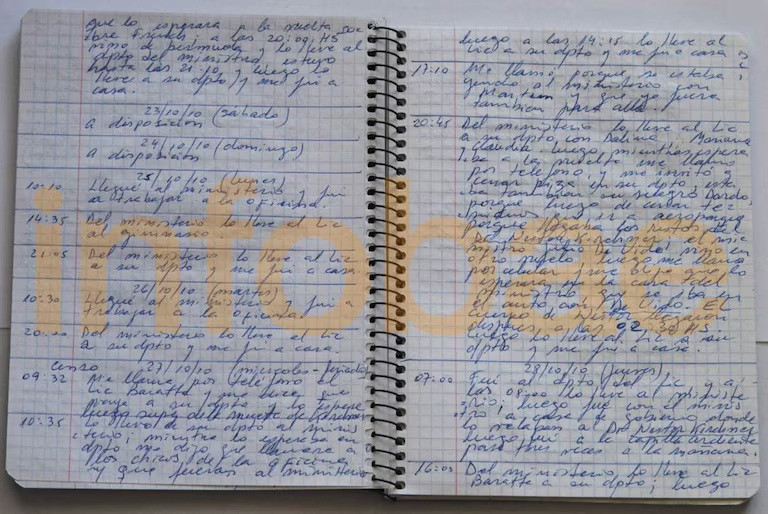 que lo esperara a la vuelta
a las 20:00 HS
y lo lleve al
dpto del ministro, estuvo
hasta las 21:10 y luego lo
lleve a su dpto y me fui a
casa.
23/10/10 (sabado)
a disposicion
24/10/10 (domingo)
a disposicion
25/10/10 (lunes)
10:10 Llegué al ministerio y fui
a trabajar a la oficina.
14:35 Del ministerio lo lleve al Lic
al gimnasio
21:05 Del ministerio lo lleve al Lic
a su dpto y me fui a casa.
26/10/10 (martes)
10:30 Llegué al ministerio y fui a
trabajar a la oficina
Del ministerio lo lleve al Lic
a su dpto y me fui a casa.
Censo 27/10/10 (miercoles - feriado)
09:32 Me llama por telefono el
Lic Baratta y me dice que
a su dpto y lo espere
luego supe del muerte de Kirchner
10:35 lo lleve de su dpto al minis
terio; mientra lo esperaba en
dpto me dijo que llamara a
los chicos de la oficina
y que fueran al ministerio
luego a las 14:15 lo lleve al
Lic a su dpto y me fui a casa
17:10 Me llamó porque se estaba
yendo al ministerio con
y que yo fuera
tambien para alla.
20:45 Del ministerio lo lleve al Lic
a su dpto con
y Claudia luego mientras espera
ba a la vuelta me llamo
por telefono, y me invitó a
cenar pizza en su dpto, esta
ba tambien su suegro
porque luego de cenar
que ir a aeroparque
porque llegaba los restos del
Dr. Nestor Kirchner, el mi
nistro De Vido vino en
otro vuelo; luego me llamo
por celular y me dijo que lo
esperara en la casa del
ministro que se iba en
el auto con De Vido. El
cuerpo de Nestor llegaron
despues a las 02:30 HS.
luego lo lleve al Lic a su
dpto y me fui a casa.
28/10/10 (jueves)
07:00 Fui al dpto del Lic y a
las 08:00 lo lleve al ministe
rio; luego fue con el minis
tro a casa de gobierno donde
lo velaban a Dr Nestor Kirchner
luego fui a la capilla ardiente
para tres veces a la mañana.
16:05 Del ministerio lo lleve al Lic
Baratta a su dpto; luego
infobae